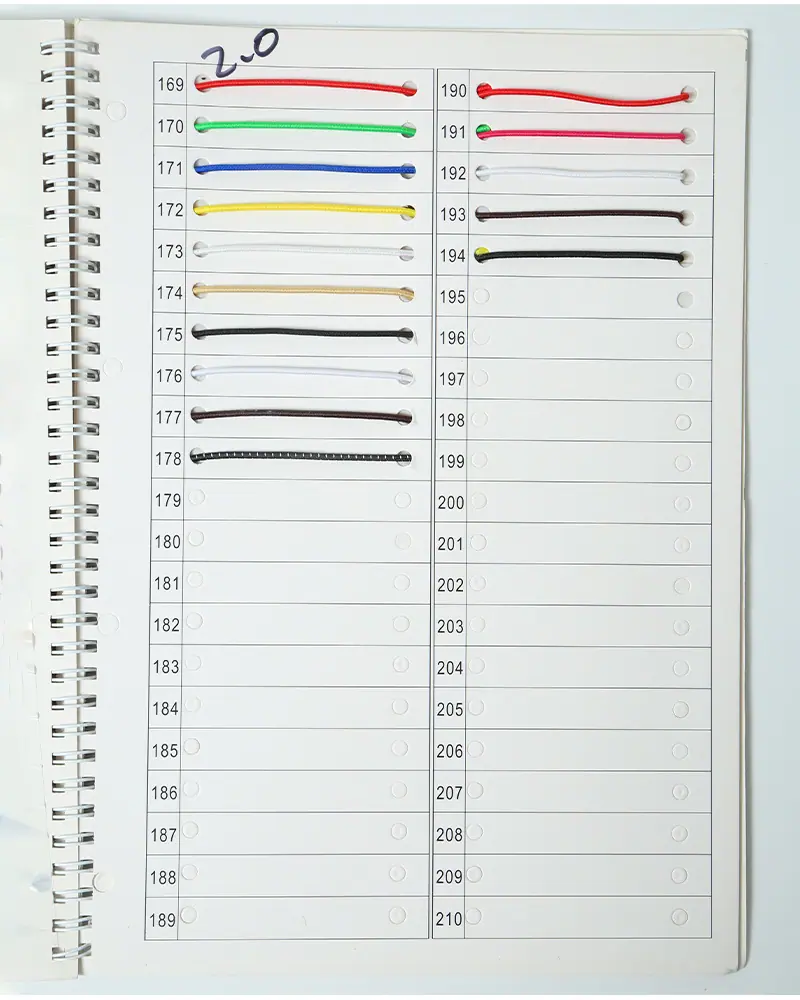 2.0
169
170
171
172
173
174
175
176
177
178
179
180
181
182
183
184
185
186
187
188
189
190
191
192
193
194
195
196
197
198
199
200
201
202
203
204
205
206
207
208
209
210